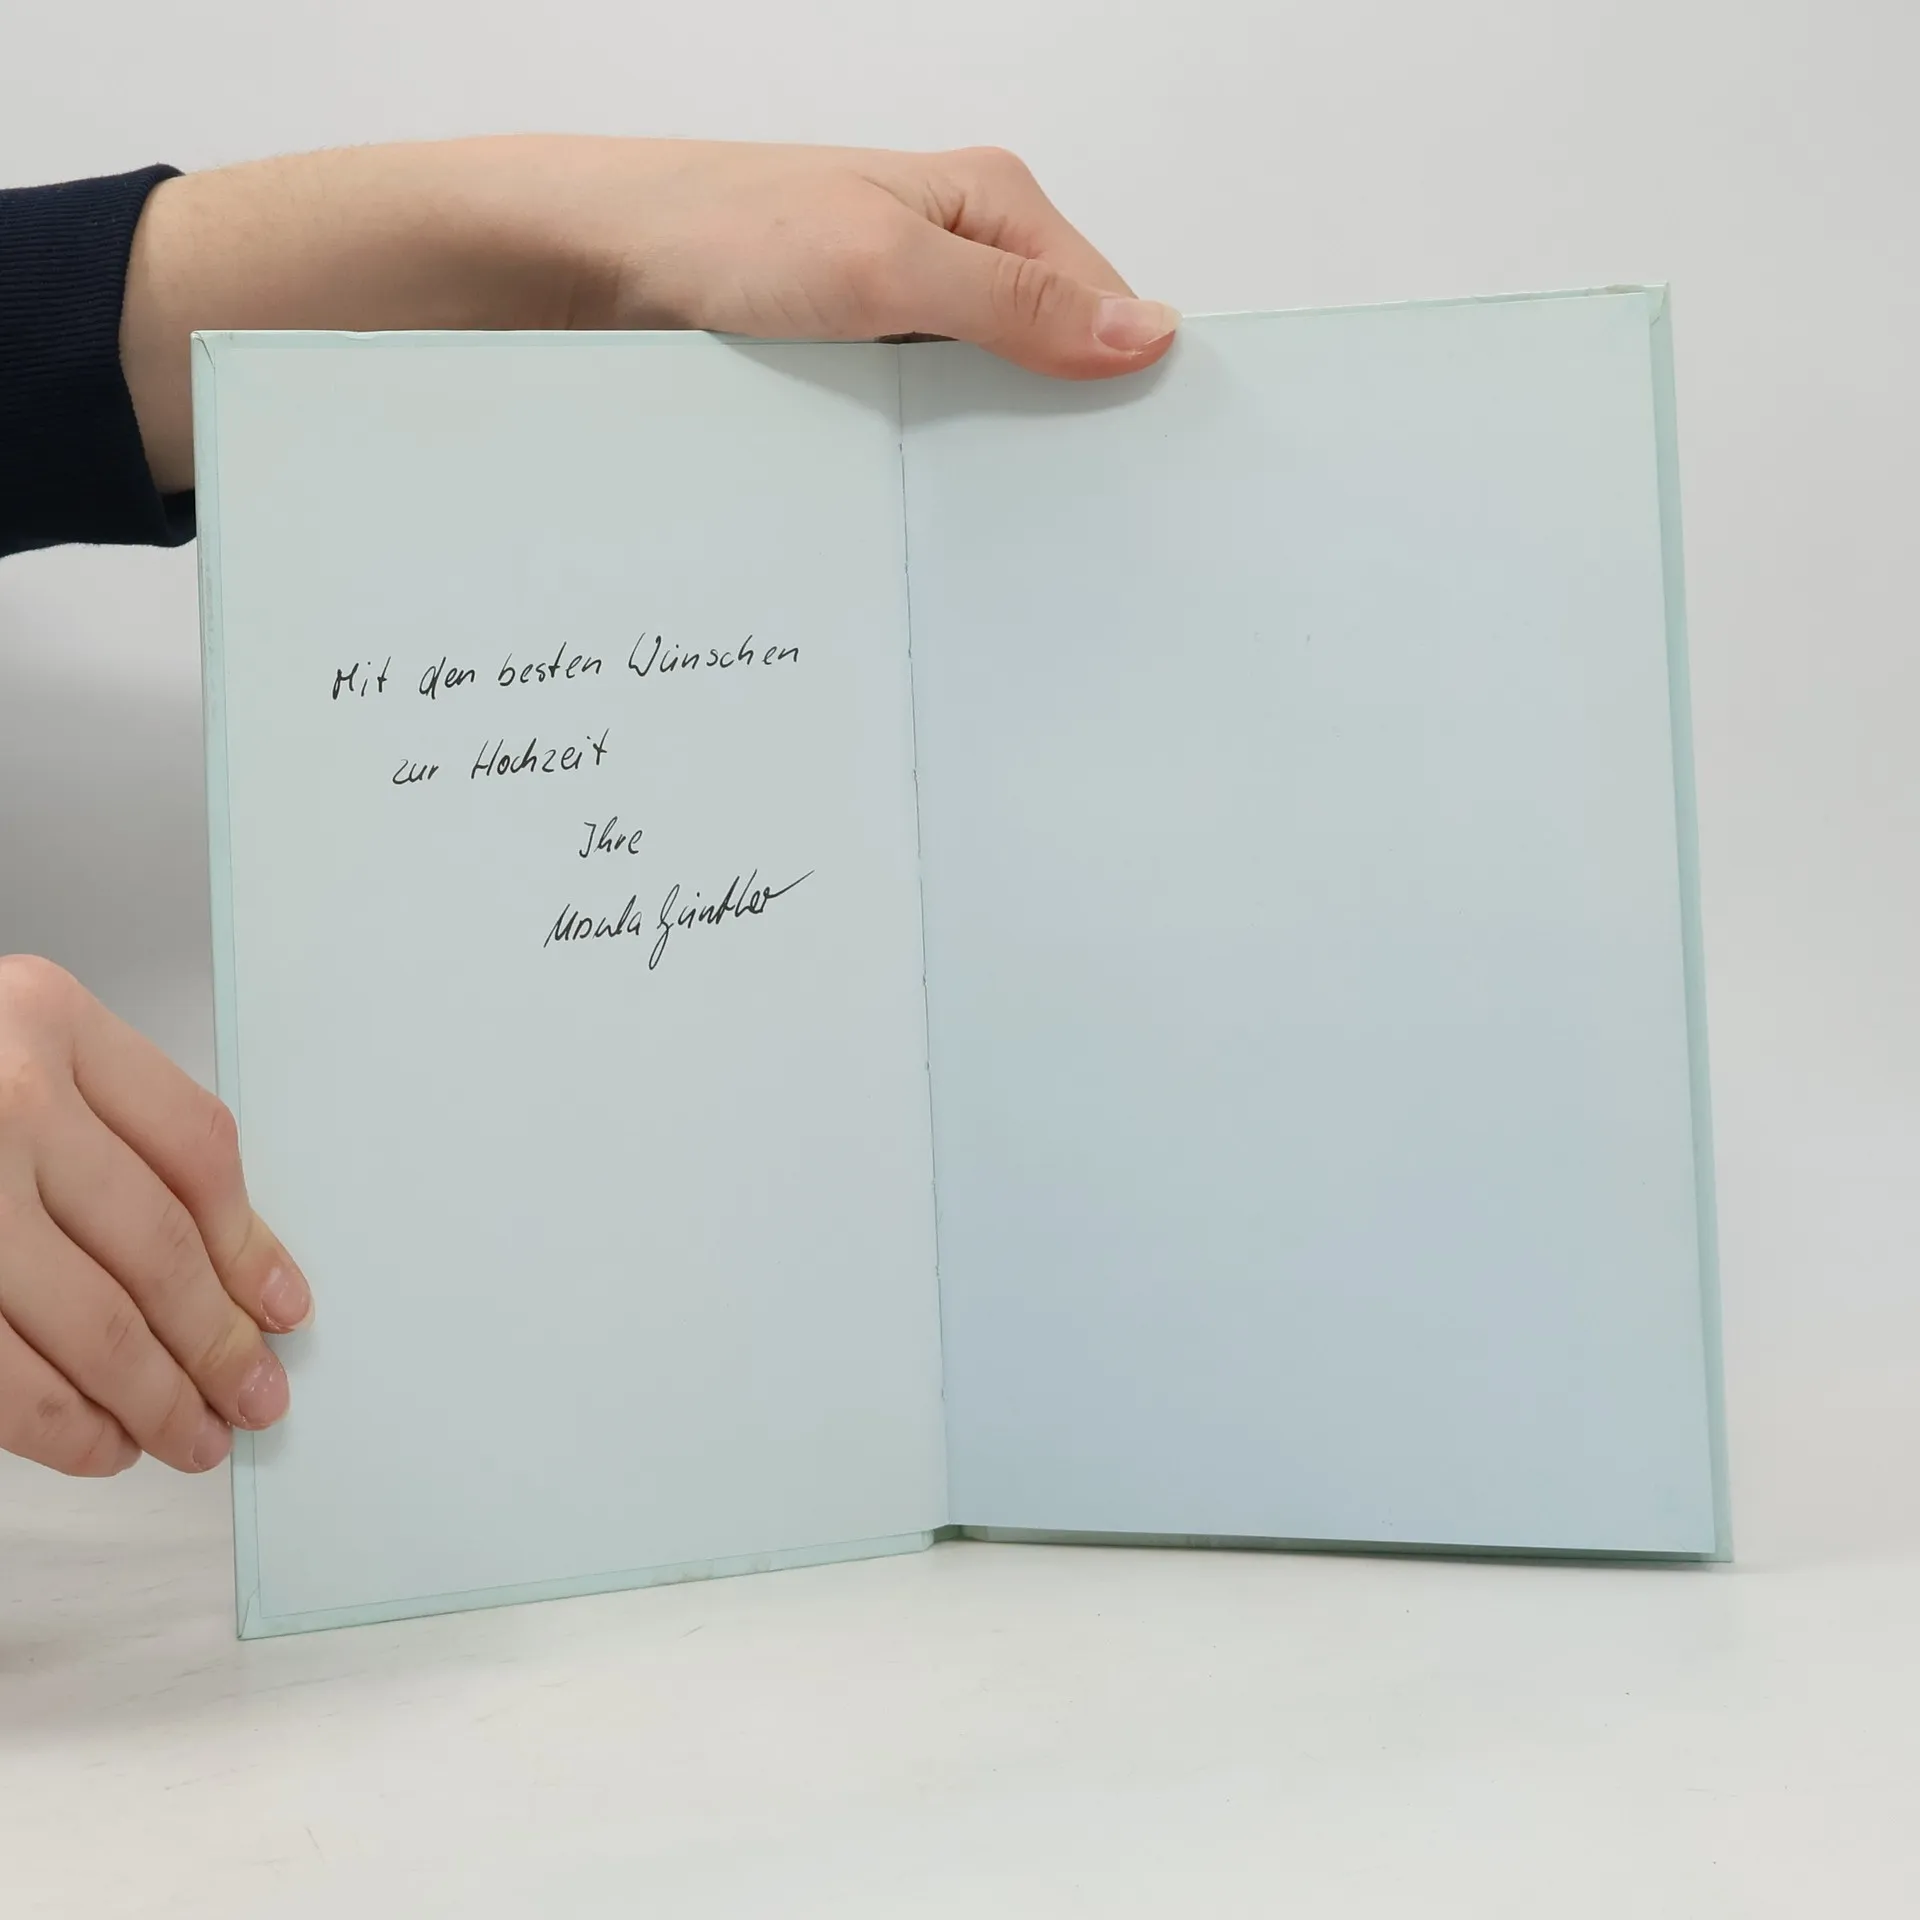 Mit den besten Wünschen
zur Hochzeit
Ihre
Ursula Günther